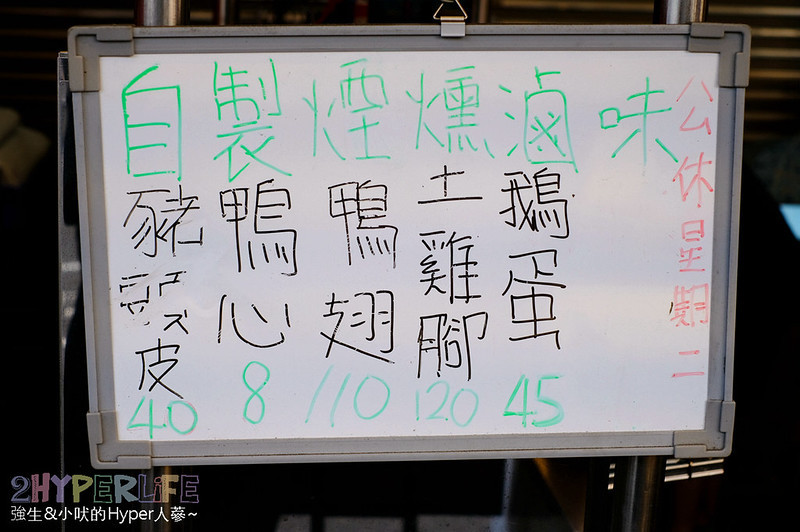 自製煙燻滷味
豬頭皮 40
鴨心 8
鴨翅 110
土雞腳 120
鵝蛋 45
公休星期二
2HYPERLiFE
強生&小吠的Hyper人蔘~